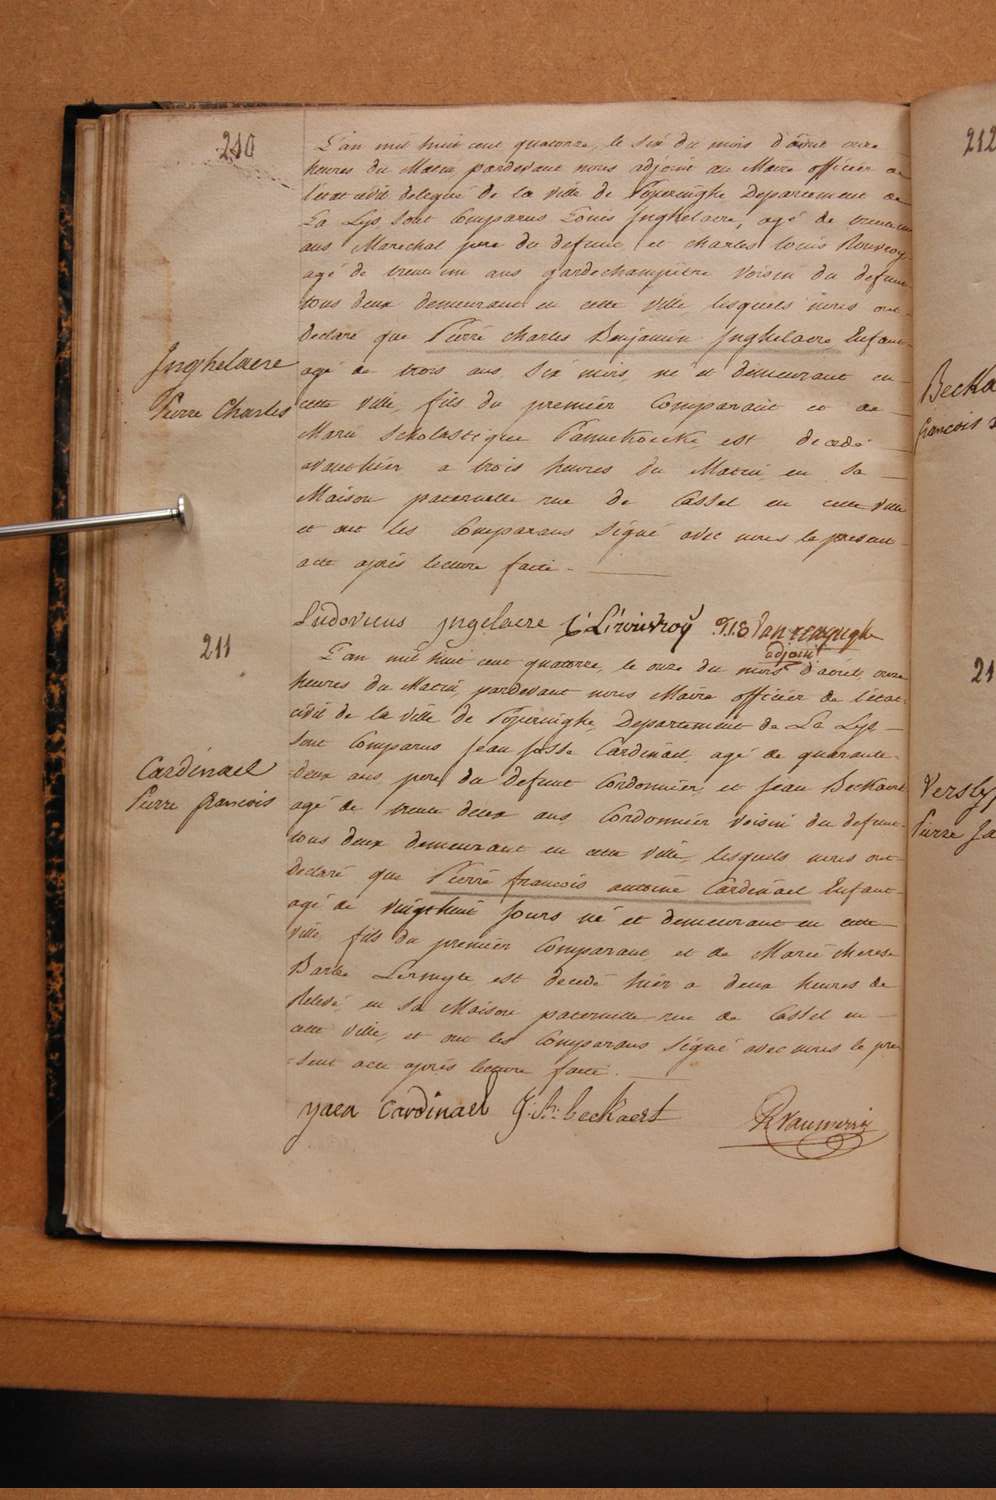 210
L'an mil huit cent quatorze, le six du mois d'aout onze
heures du Matin pardevant nous adjoint au Maire officier de
l'etat civil delegué de la ville de Poperinghe Departement de
La Lys sont Comparus Louis Inghelaere, agé de
ans Marechal pere du defunt, et charles Louis Rouvroy
agé de trente un ans gardechampetre voisin du defunt
tous deux demeurant en cette ville, lesquels nous ont
Declaré que Pierre charles Benjamin Inghelaere, Enfant
agé de trois ans six mois, né et demeurant en
Inghelaere
Pierre Charles
cette ville, fils du premier Comparant et de
Marie Scholastique Pannekoucke, est decedé
avanthier a trois heures du Matin, en sa
Maison paternelle rue de Cassel en cette ville
et ont les Comparans signé avec nous le present
acte après lecture faite.
Ludovicus Ingelaere C: L: rouvroy Van renynghe
adjoint
211
L'an mil huit cent quatorze, le onze du mois d'aout, onze
heures du Matin, pardevant nous Maire officier de l'etat
civil de la ville de Poperinghe, Departement de La Lys,
sont Comparus Jean Josse Cardinael, agé de quarante
deux ans, pere du defunt Cordonnier, et Jean Beckaert
Cardinael
Pierre françois
agé de trente deux ans, Cordonnier voisin du defunt
tous deux demeurant en cette ville, lesquels nous ont
Declaré que Pierre françois antoine Cardinael Enfant
agé de vingthuit jours né et demeurant en cette
ville, fils du premier Comparant, et de Marie therese
Barbe est decedé hier a deux heures de
Relevé, en sa Maison paternelle rue de Cassel en
cette ville, et ont les Comparans signé avec nous le pre
=sent acte après lecture faite.
yaen Cardinael J: Bt: beckaert R Vanmerris
212
Becka
francois
21
Versly
Pierre Ja